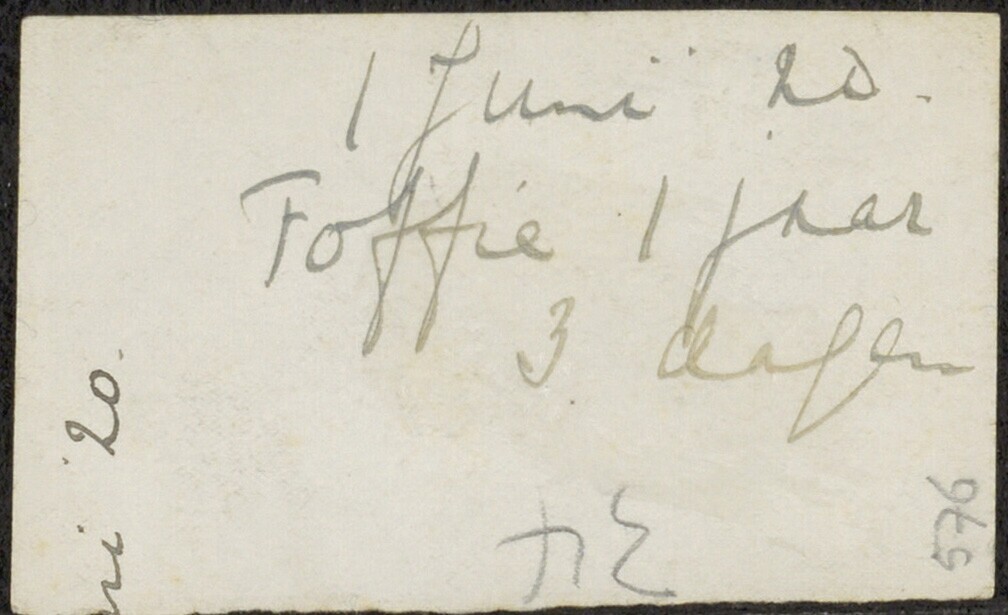 1 Juni 20.
Foffie 1 jaar
3 dagen
ni 20.
576